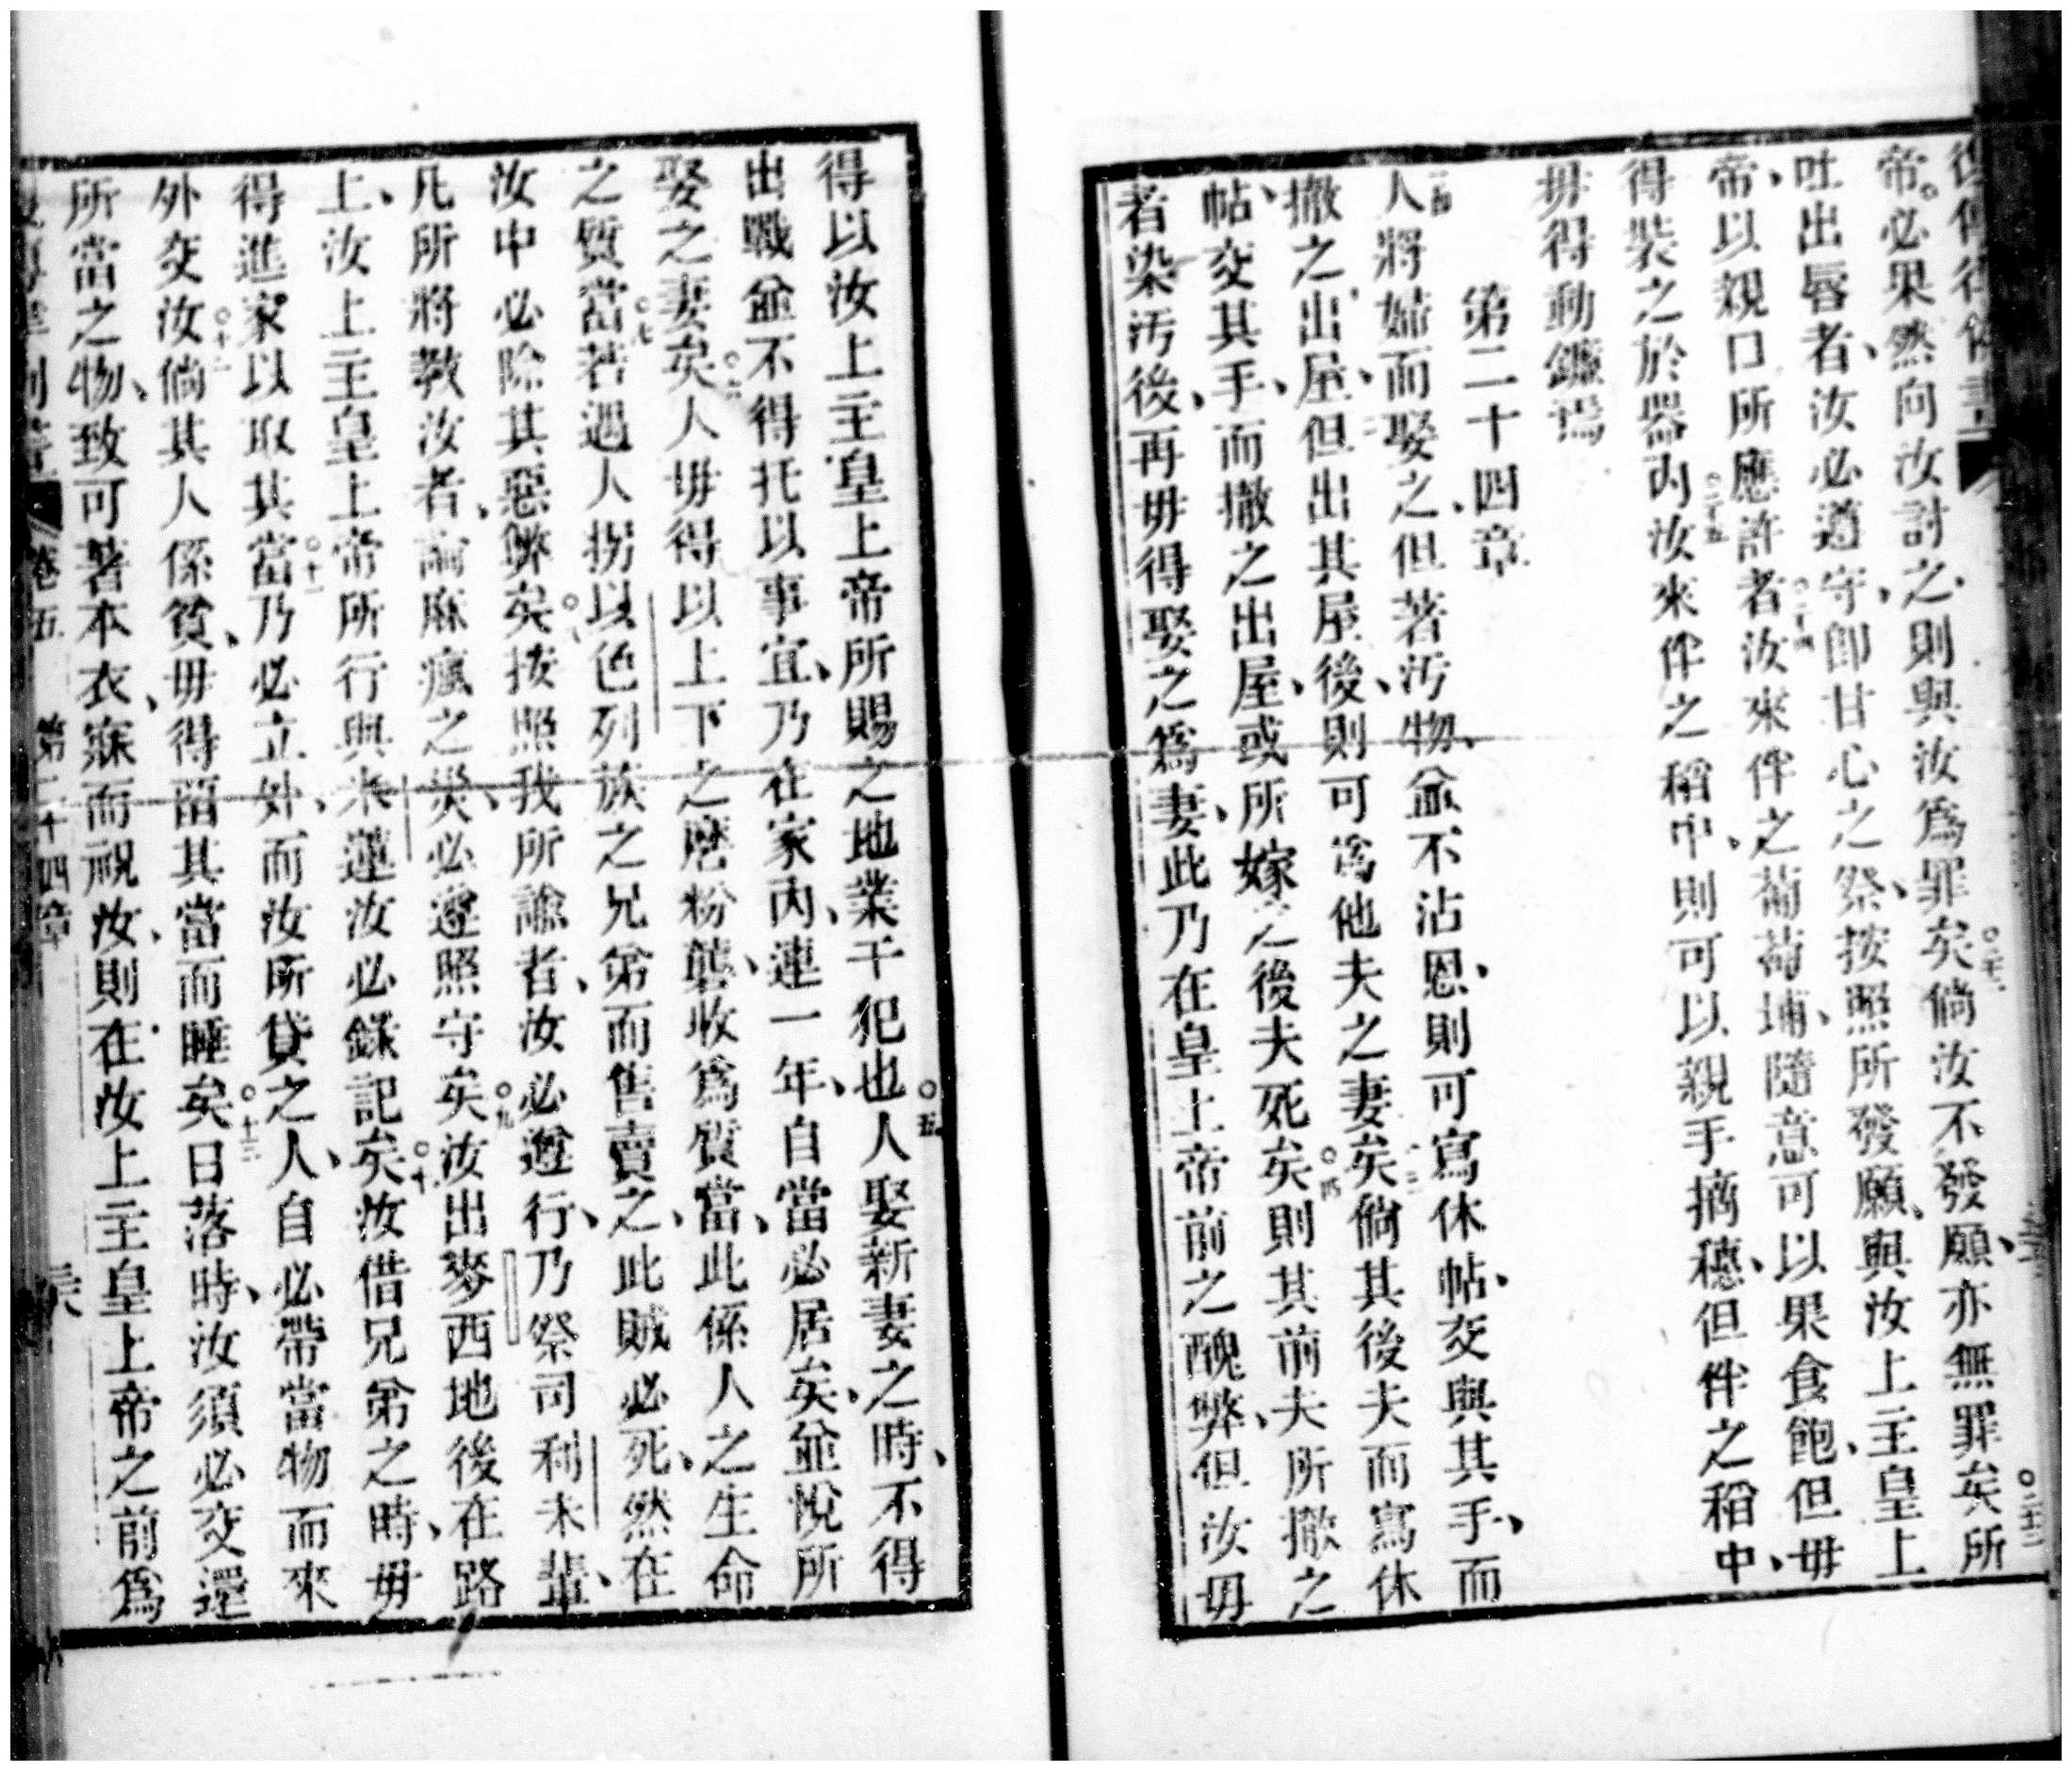 帝。必果然向汝討之、則與汝爲罪矣○二十二倘汝不發願、亦無罪矣○二十三所
吐出唇者、汝必遵守、卽甘心之祭、按照所發願、與汝上主皇上
帝、以親口所應許者○二十四汝來伴之葡萄埔、隨意可以果食飽、但毋
得裝之於器內○二十五汝來伴之稻中、則可以親手摘穗、但伴之稻中、
毋得動鐮焉
第二十四章
人將婦而娶之、但著污物、並不沾恩、則可寫休帖、交與其手、而
撤之出屋、但出其屋後、則可爲他夫之妻矣倘其後夫而寫休
帖、交其手、而撤之出屋、或所嫁之後夫死矣○四則其前夫所撤之
者染污後、再毋得娶之爲妻、此乃在皇上帝前之醜弊、但汝毋
得以汝上主皇上帝所賜之地業干犯也○五人娶新妻之時、不得
出戰並不得托以事宜、乃在家內、連一年、自當必居矣、並悅所
娶之妻矣○六人毋得以上下之磨粉礱、收爲質當、此係人之生命
之質當○七若遇人拐以色列族之兄弟而售賣之、此賊必死、然在
汝中必除其惡弊矣○八按照我所諭者、汝必遵行、乃祭司利未輩、
凡所將教汝者、論麻瘋之災、必遵照守矣○九汝出麥西地後在路
上、汝上主皇上帝所行與米蓮汝必錄記矣○十汝借兄弟之時、毋
得進家以取其當○十一乃必立外、而汝所貸之人、自必帶當物而來
外交汝○十二倘其人係貧、毋得留其當而睡矣○十三日落時、汝須必交還
所當之物、致可著本衣、寐而祝汝、則在汝上主皇上帝之前爲
卷五 第二十四章